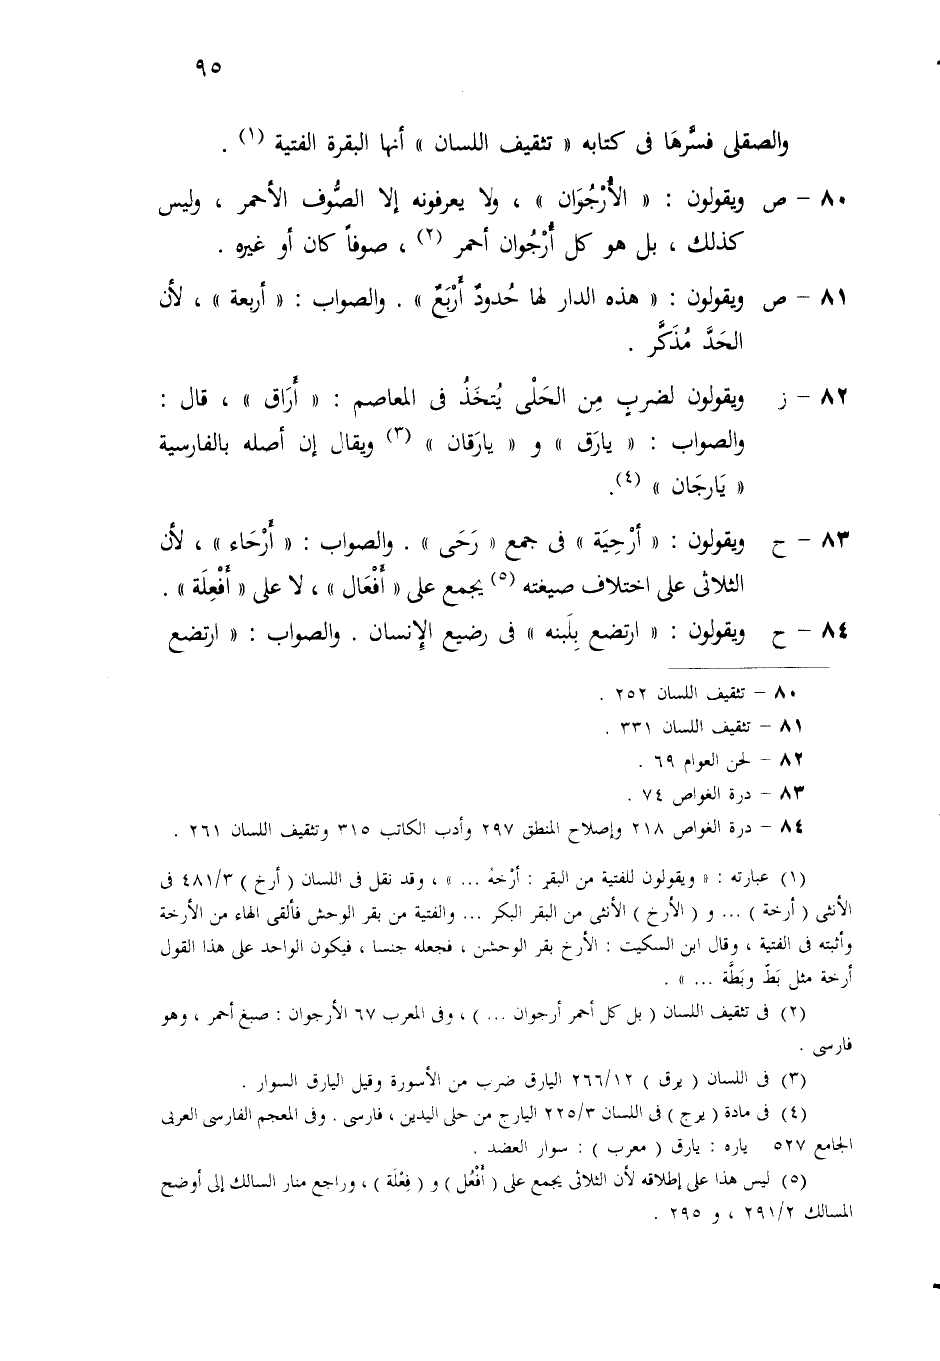 ٩٥
والصقلى فسَّرهَا فى كتابه « تثقيف اللسان » أنها البقرة الفتية (١) .
٨٠ – ص ويقولون : « الأُرْجُوَان » ، ولا يعرفونه إلا الصُّوف الأحمر ، وليس
كذلك ، بل هو كل أُرْجُوان أحمر (٢) ، صوفاً كان أو غيره .
٨١ – ص ويقولون : « هذه الدار لها حُدودٌ أَرْبَعٌ » . والصواب : « أربعة » ، لأن
الحَدَّ مُذَكَّر .
٨٢ – ز ويقولون لضربٍ مِن الحَلْى يُتخَذُ فى المعاصم : « أَرَاق » ، قال :
والصواب : « يارَق » و « يارَقان » (٣) ويقال إن أصله بالفارسية
« يَارجَان » (٤).
٨٣ – ح ويقولون : « أرْحِيَة » فى جمع « رَحَى » . والصواب : « أَرْحَاء » ، لأن
الثلاثى على اختلاف صيغته (٥) يجمع على « أَفْعَال » ، لا على « أَفْعِلَة » .
٨٤ – ح ويقولون : « ارتضع بِلَبنه » فى رضيع الإِنسان . والصواب : « ارتضع
٨٠ – تثقيف اللسان ٢٥٢ .
٨١ – تثقيف اللسان ٣٣١ .
٨٢ – لحن العوام ٦٩ .
٨٣ – درة الغواص ٧٤ .
٨٤ – درة الغواص ٢١٨ وإصلاح المنطق ٢٩٧ وأدب الكاتب ٣١٥ وتثقيف اللسان ٢٦١ .
(١) عبارته : « ويقولون للفتية من البقر : أرْخة ... » ، وقد نقل فى اللسان ( أرخ ) ٤٨١/٣ فى
الأنثى ( أرخة ) ... و ( الأرخ ) الأنثى من البقر البكر ... والفتية من بقر الوحش فألقى الهاء من الأرخة
وأثبته فى الفتية ، وقال ابن السكيت : الأرخ بقر الوحش ، فجعله جنسا ، فيكون الواحد على هذا القول
أرخة مثل بَطّ وبَطَّة ... » .
(٢) فى تثقيف اللسان ( بل كل أحمر أرجوان ... ) ، وفى المعرب ٦٧ الأرجوان : صبغ أحمر ، وهو
فارسى .
(٣) فى اللسان ( يرق ) ٢٦٦/١٢ اليارق ضرب من الأسورة وقيل اليارق السوار .
(٤) فى مادة ( يرج ) فى اللسان ٢٢٥/٣ اليارج من حلى اليدين ، فارسى . وفى المعجم الفارسى العربى
الجامع ٥٢٧ ياره : يارق ( معرب ) : سوار العضد .
(٥) ليس هذا على إطلاقه لأن الثلاثى يجمع على ( أَفْعُل ) و ( فِعْلَة ) ، وراجع منار السالك إلى أوضح
المسالك ٢٩١/٢ ، و ٢٩٥ .